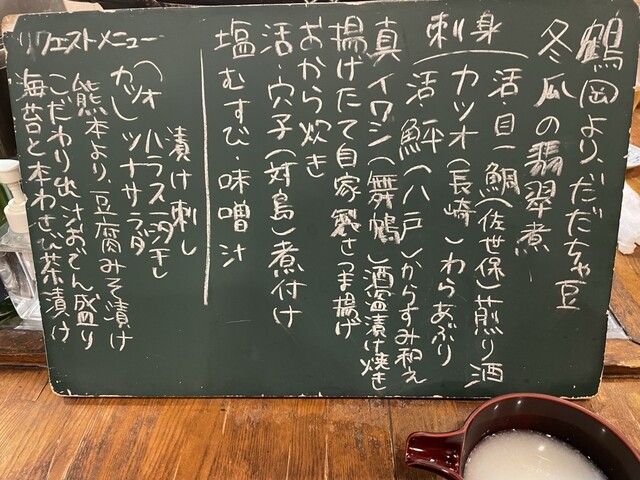 鶴岡より、だだちゃ豆
冬瓜の翡翠煮
刺身
活・目一鯛(佐世保)煎り酒
カツオ(長崎)わらあぶり
活・鮃(八戸)からすみ和え
真イワシ(舞鶴)酒盗漬け焼き
揚げたて自家製さつま揚げ
おから炊き
活・穴子(対島)煮付け
塩むすび・味噌汁
リクエストメニュー
カツオ
漬け刺し
ハラス一夜干し
ツナサラダ
熊本より、豆腐みそ漬け
こだわり出汁おでん盛り
海苔と本わさび茶漬け